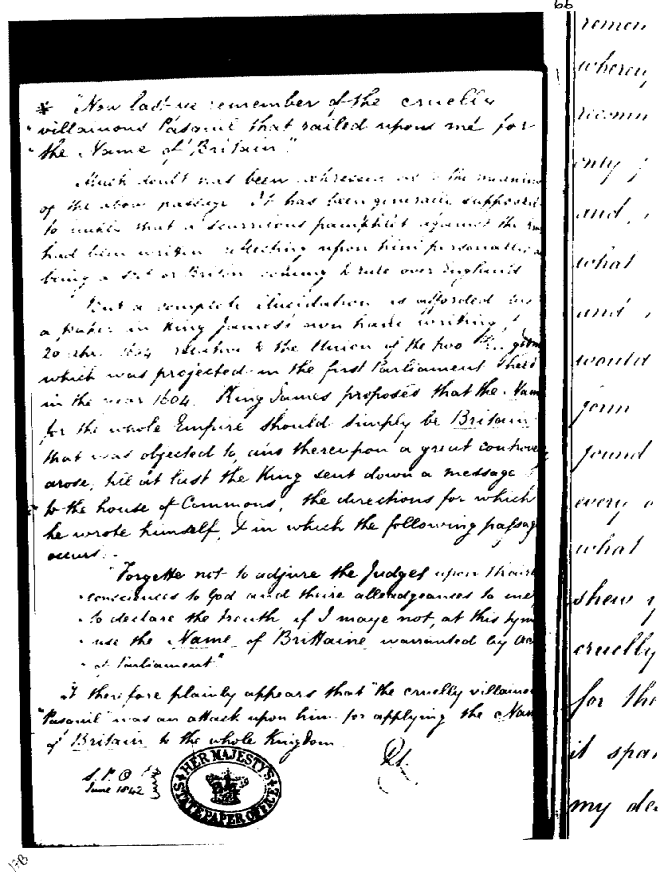 66
* "Now last we remember of the cruelly
villainous Pasquil that railed upon me for
the Name of Britain"
Much doubt has been expressed as to the meaning
of the above passage. It has been generally supposed
to imply that a scurrilous pamphlet against the
had been written reflecting upon him personally
being a Scot or Briton coming to rule over England
But a complete elucidation is afforded by
a paper in King James's own hand writing
20 1604 relative to the Union of the two
which was projected in the first Parliament held
in the year 1604. King James proposes that the Name
for the whole Empire should simply be Britain
that was objected to, and thereupon a great controve
arose, till at last the King sent down a message
to the house of Commons, the directions for which
he wrote himself, & in which the following passag
occurs.-
"Forgette not to adjure the Judges upon thaire
consciences to God and thaire alleadgeances to me
to declare the treuth, if I maye not, at this tym
use the Name of Brittaine, warranted by
of Parliament"
It therefore plainly appears that "the cruelly villaino
Pasquil" was an attack upon him for applying the Nam
of Britain to the whole Kingdom
S.P.O
June 1842
HER MAJESTY'S
STATE PAPER OFFICE
remem
whereup
recomm
only
and
what
and
would
found
every
what
shew
cruelly
for the
it
my de